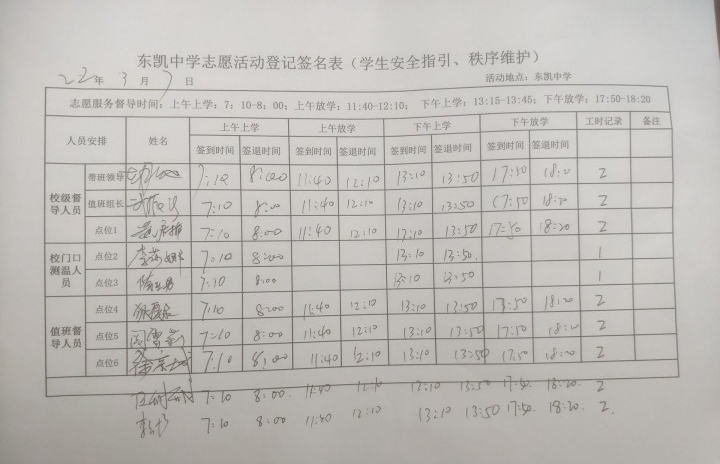 东凯中学志愿活动登记签名表（学生安全指引、秩序维护）
22年 3月 7日 活动地点：东凯中学
志愿服务督导时间：上午上学：7：10-8：00；上午放学：11:40-12:10； 下午上学：13:15-13:45；下午放学：17:50-18:20
人员安排 姓名 上午上学 上午放学 下午上学 下午放学 工时记录 备注
签到时间 签退时间 签到时间 签退时间 签到时间 签退时间 签到时间 签退时间
校级督导人员 带班领导 7:10 8:00 11:40 12:10 13:10 13:50 17:50 18:20 2
值班组长 7:10 8:00 11:40 12:10 13:10 13:50 17:50 18:20 2
点位1 7:10 8:00 11:40 12:10 13:10 13:50 17:50 18:20 2
校门口测温人员 点位2 7:10 8:00 13:10 13:50. 1
点位3 7:10 8:00 13:10 13:50 1
值班督导人员 点位4 7:10 8:00 11:40 12:10 13:10 13:50 17:50 18:20 2
点位5 7:10 8:00 11:40 12:10 13:10 13:50 17:50 18:20 2
点位6 7:10 8:00 11:40 12:10 13:10 13:50 17:50 18:20 2
7:10 8:00. 11:40 12:10 13:10 13:50 17:50. 18:20. 2
7:10 8:00 11:40 12:10 13:10 13:50 17:50. 18:20. 2.